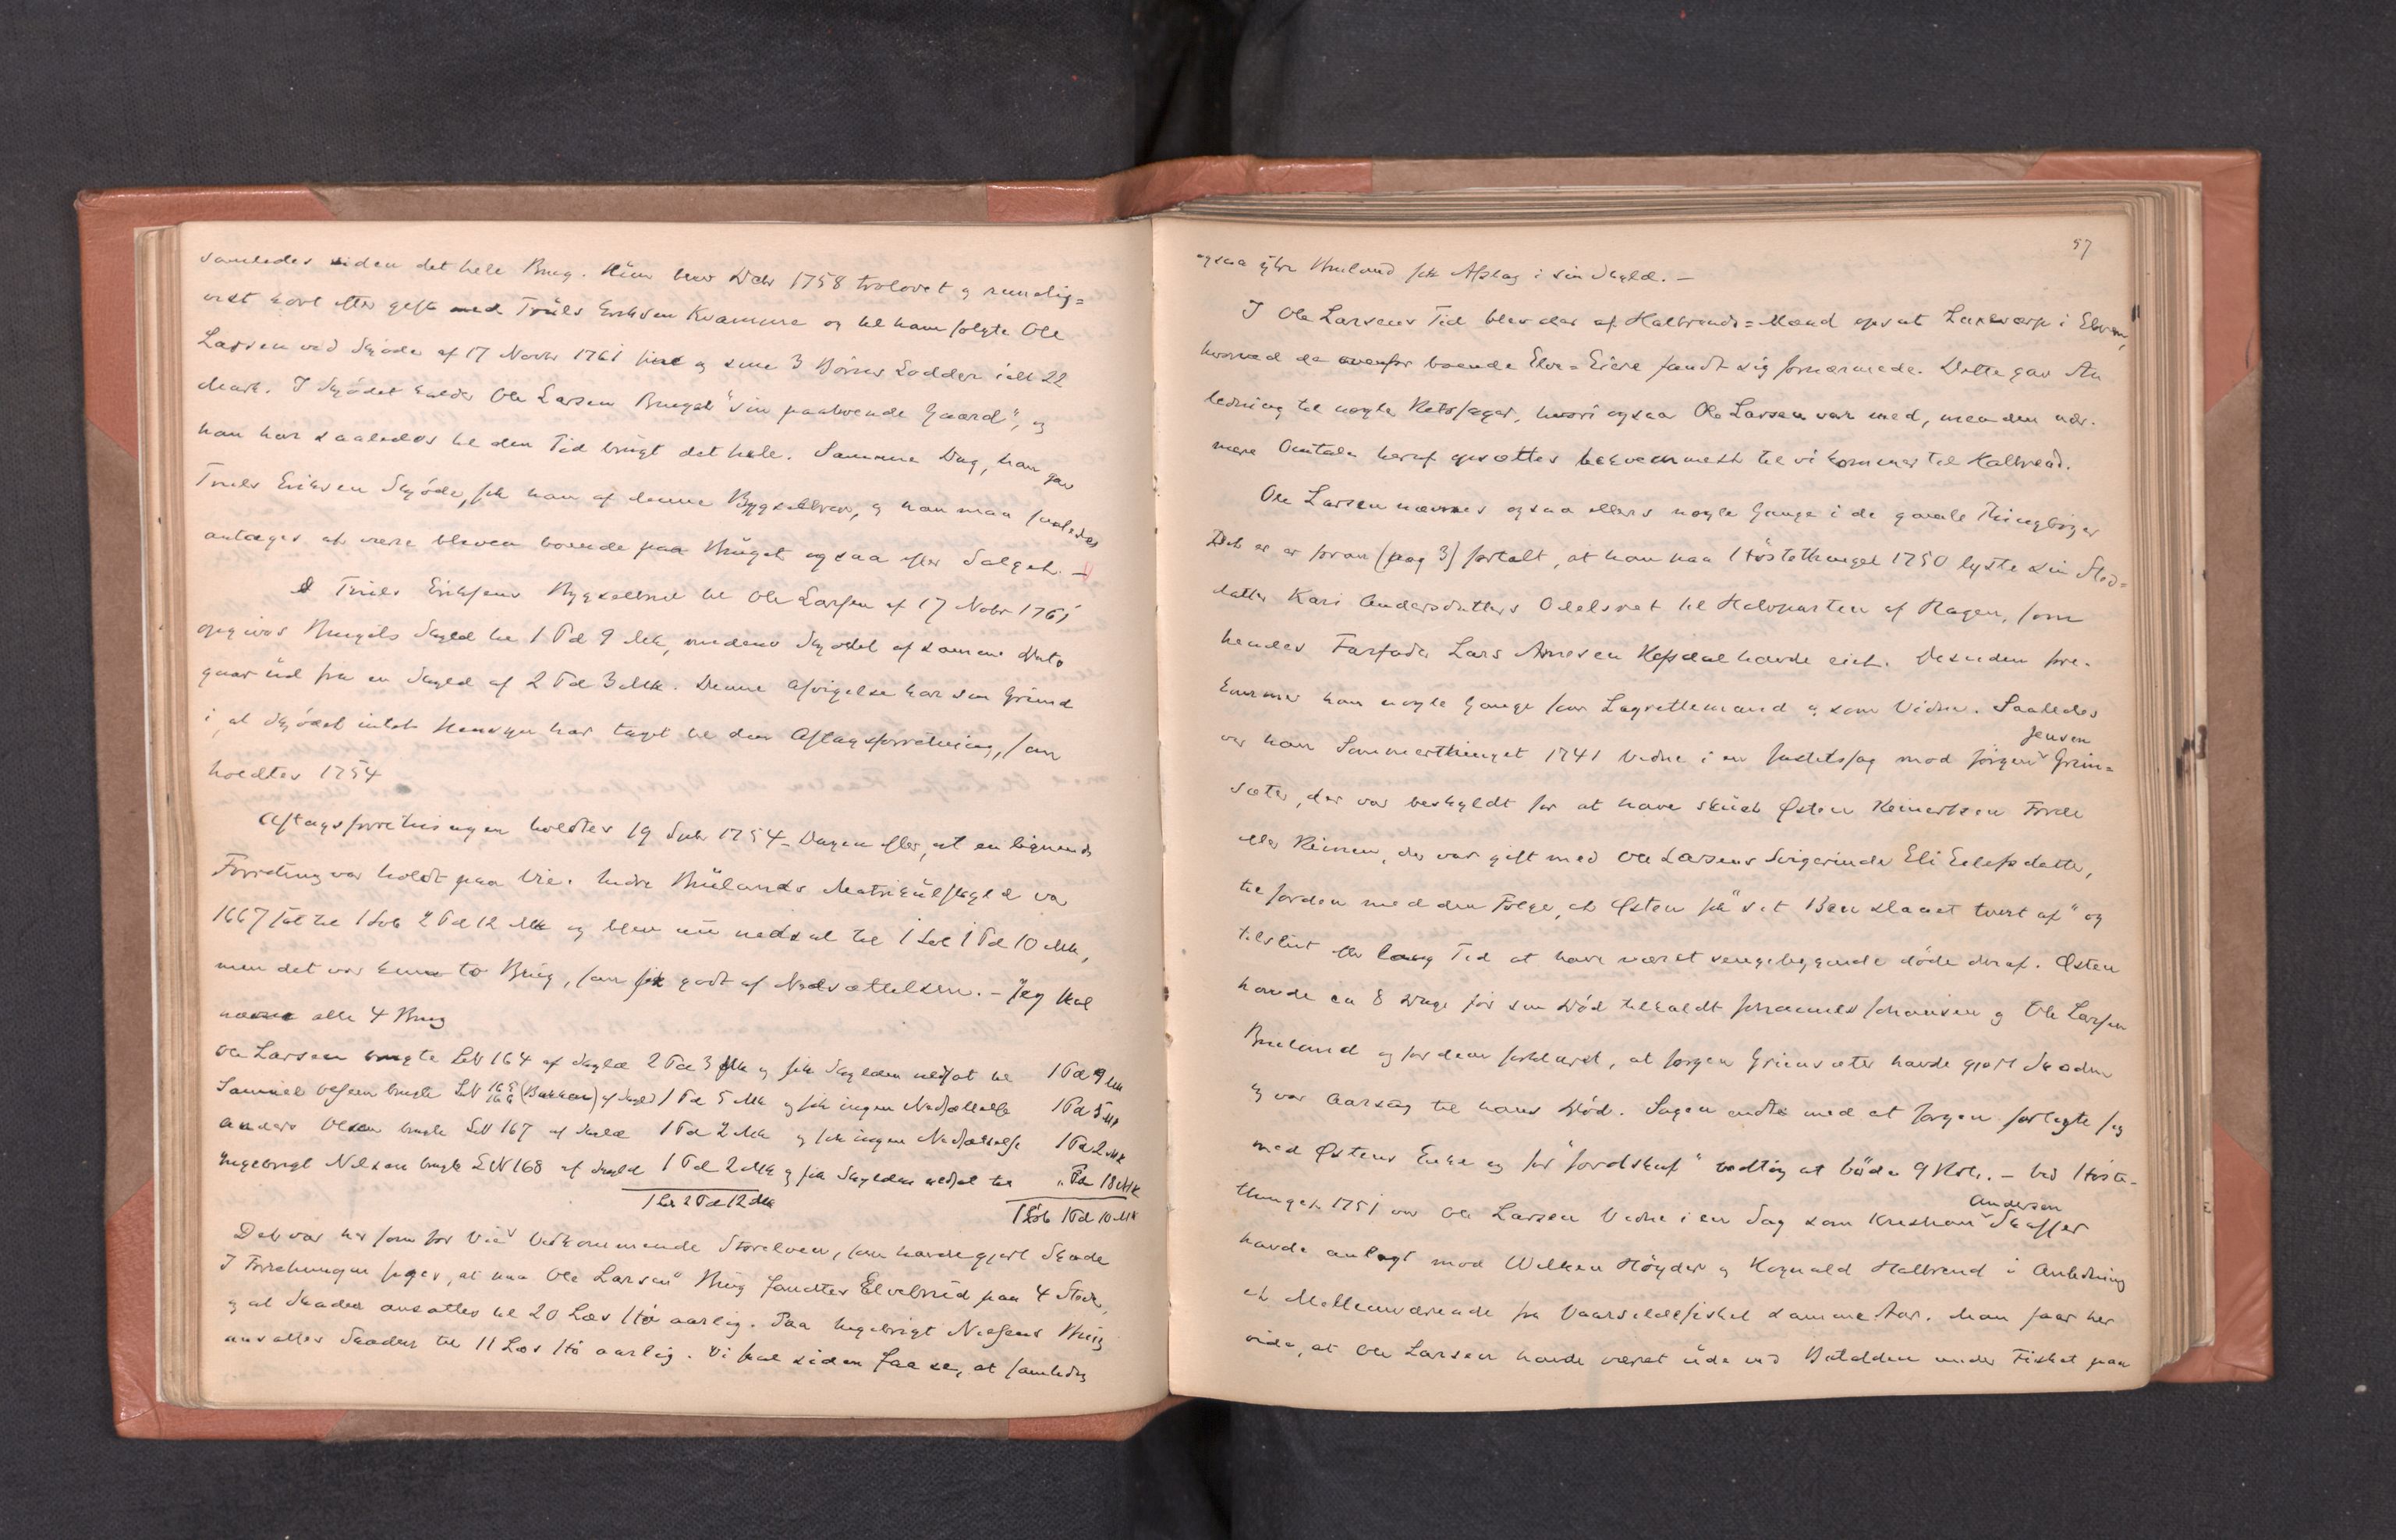 samledes siden det hele Brug. Hun blev Dcbr 1758 trolovet og rimelig=
vist kort efter gift med Truls Eriksen Kvamme og til ham solgte Ole
Larsen ved Skjøde af 17 Novbr 1761 sine og sine 3 Børns Lodder ialt 22
Mark. I Skjødet kalder Ole Larsen Bruget "sin paaboende Gaard", og
han har saaledes til den Tid brugt det hele. Samme Dag, han gav
Truls Eriksen Skjøde, fik han af denne Bygselbrev, og han maa saaledes
antages at være bleven boende paa Bruget ogsaa efter Salget. —
I Truls Eriksens Bygselbrev til Ole Larsen af 17 Novbr 1761
opgives Brugets Skyld til 1 Pd 9 Mk, medens Skjødet af samme Dato
gaar ud fra en Skyld af 2 Pd 3 Mk. Denne Afvigelse har sin Grund
i, at Skjødet intet Hensyn har taget til den Aftagsforretning, som
holdtes 1754
Aftagsforretningen holdtes 19 Spbr 1754 - Dagen efter, at en lignende
Forretning var holdt paa Vie. Indre Bruelands Matrikulskyld var
1667 sat til 1 Løb 2 Pd 12 Mk og blev nu nedsat til 1 Løb 1 Pd 10 Mk,
men det var kun to Brug, som fik godt af Nedsættelsen. - Jeg skal
nævne alle 4 Brug
Ole Larsen brugte LN 164 af Skyld 2 Pd 3 Mk og fik Skylden nedsat til 1 Pd 9 Mk
Samuel Olsen brugte LN 165 166 (Bakken) af Skyld 1 Pd 5 Mk og fik ingen Nedsættelse 1 Pd 5 Mk
Anders Olsen brugte LN 167 af Skyld 1 Pd 2 Mk og fik ingen Nedsættelse 1 Pd 2 Mk
Ingebrigt Nilsen brugte LN 168 af Skyld 1 Pd 2 Mk og fik Skylden nedsat til " Pd 18 Mk
1 Lb 2 Pd 12 Mk 1 Løb 1 Pd 10 Mk
Det var her som for Vies Vedkommende Storelven, som havde gjort Skade
I Forretningen siges, at paa Ole Larsens Brug fandtes Elvebrud paa 4 Steder,
og at Skaden ansattes til 20 Læs Hø aarlig. Paa Ingebrigt Nielsens Brug
ansattes Skaden til 11 Læs Hø aarlig. Vi skal siden faa se, at samtidig
57
ogsaa ytre Brueland fik Afslag i sin Skyld. —
I Ole Larsens Tid blev der af Halbrends=Mænd opsat Laxeværp i Elven,
hvorved de ovenfor boende Elve=Eiere fandt sig fornærmede. Dette gav An
ledning til nogle Retssager, hvori ogsaa Ole Larsen var med, men den nær-
mere Omtale heraf opsættes bekvemmest til vi kommer til Halbrend.
Ole Larsen nævnes ogsaa ellers nogle Gange i de gamle Thingbøger
Det er foran (pag 3) fortalt, at han paa Høstethinget 1750 lyste sin Sted=
datter Kari Andersdatters Odelsret til Halvparten af Hagen, som
hendes Farfader Lars Arnesen Hafstad havde eiet. Desuden fore-
kommer han nogle Gange som Lagrettemand og som Vidne. Saaledes
var han Sommerthinget 1741 Vidne i en Justitssag mod Jørgen Jensen Grim=
sæter, der var beskyldt for at have skudt Østen Reinertsen Førde
eller Reinen, der var gift med Ole Larsens Svigerinde Eli Eilefsdatter,
til Jorden med den Følge, at Østen fik "et Ben slaaet tvert af" og
tilslut efter lang Tid at have været sengeliggende døde deraf. Østen
havde ca 8 Dage før sin Død tilkaldt Johannes Johansen og Ole Larsen
Brueland og for dem forklaret, at Jørgen Grimsæter havde gjort Skaden
og var Aarsag til hans Død. Sagen endte med at Jørgen forligte sig
med Østens Enke og for "Jordskuf" vedtog at bøde 9 Rdlr. — Ved Høste-
thinget 1751 var Ole Larsen Vidne i en Sag som Kristian Andersen Skaffer
havde anlagt mod Wilken Høyder og Rognald Halbrend i Anledning
et Mellemværende fra Vaarsildefisket samme Aar. Man faar her
vide, at Ole Larsen havde været ude ved Batalden under Fisket paa